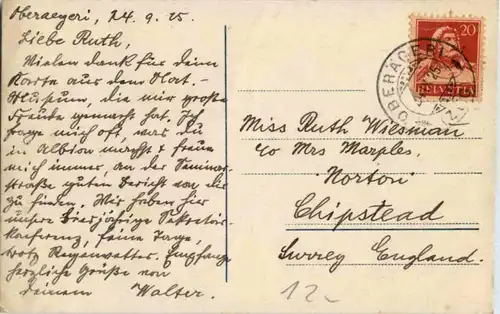 Oberaegeri, 24.9.25.
Liebe Ruth,
Vielen Dank für deine
Karte aus dem Nat.-
Museum, die mir große
Freude gemacht hat. Ich
frage mich oft, was du
in Albion machst & freue
mich immer, an der Seminar-
straße guten Bericht von dir
zu finden. Wir haben hier
unsere diesjährige Sekretär-
konferenz, feine Tage,
trotz Regenwetter. Empfange
herzliche Grüße von
deinem Walter.
Miss Ruth Wiesman
c/o Mrs Marples,
Norton
Chipstead
Surrey England.
12.-
20
HELVETIA
OBERÄGERI